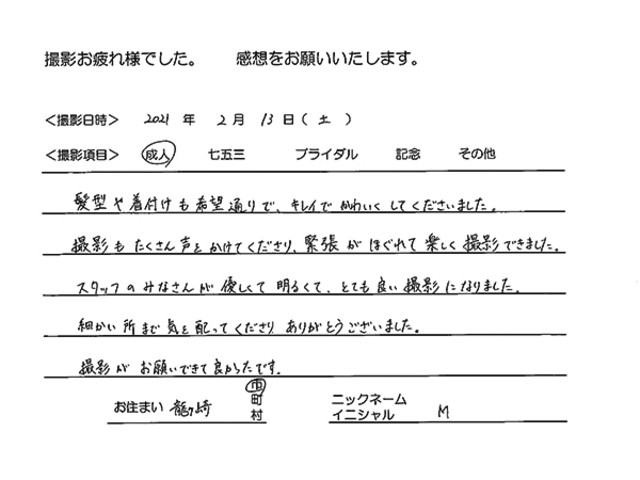 撮影お疲れ様でした。 感想をお願いいたします。
＜撮影日時＞ 2021 年 2 月 13 日 ( 土 )
＜撮影項目＞ 成人 七五三 ブライダル 記念 その他
髪型や着付けも希望通りで、キレイでかわいくしてくださいました。
撮影もたくさん声をかけてくださり、緊張がほぐれて楽しく撮影できました。
スタッフのみなさんが優しくて明るくて、とても良い撮影になりました。
細かい所まで気を配ってくださりありがとうございました。
撮影がお願いできて良かったです。
お住まい 龍ヶ崎 市 町 村
ニックネーム
イニシャル M